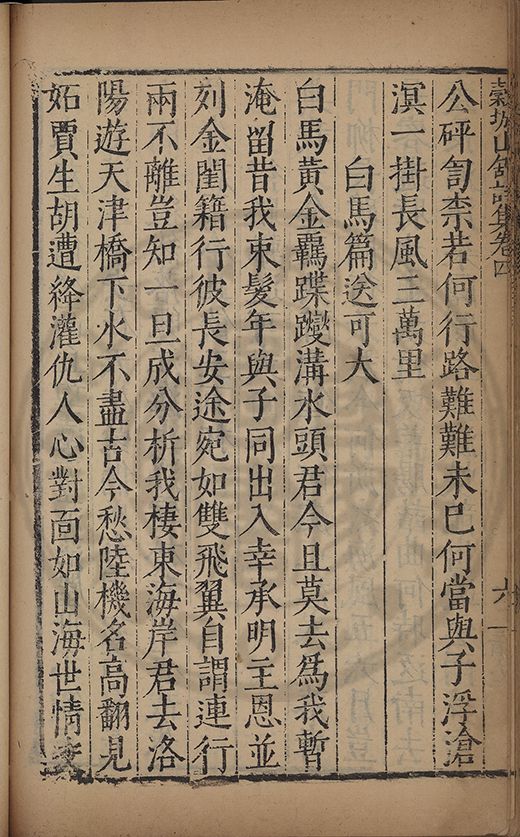 穀城山館詩集卷四
六
公砰訇柰若何行路難難未已何當與子浮滄
溟一掛長風三萬里
白馬篇送可大
白馬黃金羈蹀躞溝水頭君今且莫去爲我暫
淹留昔我束髮年與子同出入幸承明主恩並
刻金閨籍行彼長安途宛如雙飛翼自謂連行
兩不離豈知一旦成分析我棲東海岸君去洛
陽遊天津橋下水不盡古今愁陸機名高翻見
妬賈生胡遭絳灌仇人心對面如山海世情